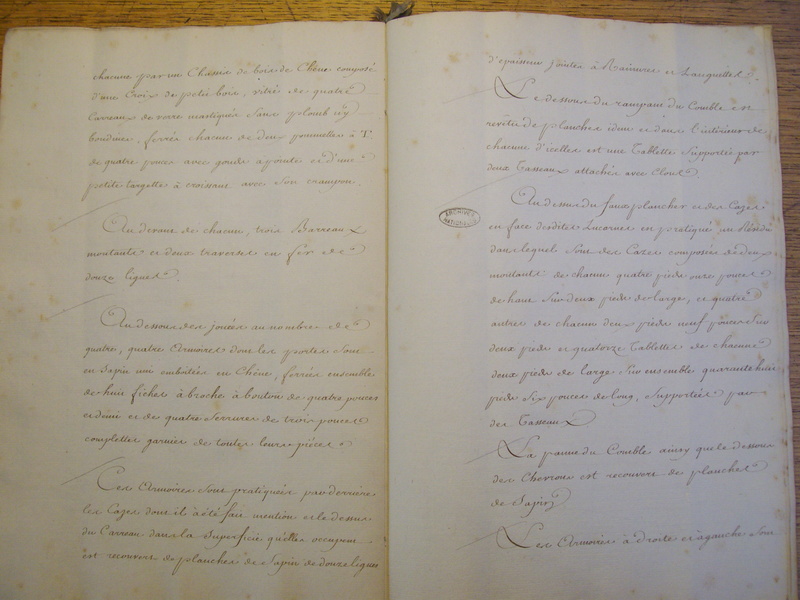 chacune par un Chassis de bois de Chêne composé
d'une Croix de petit bois, vitré de quatre
Carreaux de verre mastiqués sans plomb n'y
boudines, ferrés chacun de deux pommelles à T
de quatre pouces avec gonds a pointe et d'une
petite targette à croissant avec son crampon.
Au devant de chacun, trois Barreaux
montants et deux traverses en fer de
douze lignes.
Au dessous des jouées au nombre de
quatre, quatre Armoires dont les portes sont
en Sapin emboîtés en Chêne, ferrés ensemble
de huit fiches à broche à bouton de quatre pouces
et demi et de quatre Serrures de trois pouces
complettes garnies de toutes leurs pièces.
Ces Armoires sont pratiquées par derriere
les Cazes dont il a été fait mention et le dessus
du Carreau dans la Superficie qu'elles occupent
est recouvert de planches de Sapin de douze lignes
d'épaisseur jointes à Rainures et Languettes.
Le dessous du rampant du Comble est
revêtu de planches idem et dans l'intérieur de
chacune d'icelles est une Tablette Supportée par
deux Tasseaux attachés avec Clous.
ARCHIVES
NATIONALES
Au dessus du faux plancher et des Cazes
en face desdites Lucarnes est pratiqué un Réduit
dans lequel sont des Cazes composées de deux
montants de chacun quatre pieds onze pouces
de haut sur deux pieds de large, et quatre
autres de chacun deux pieds neuf pouces sur
deux pieds et quatorze Tablettes de chacune
deux pieds de large sur ensemble quarante huit
pieds six pouces de long, Supportées par
des Tasseaux
La panne du Comble ainsy que le dessous
des Chevrons est recouvert de planches
de Sapin
Les Armoires à droite et à gauche sont